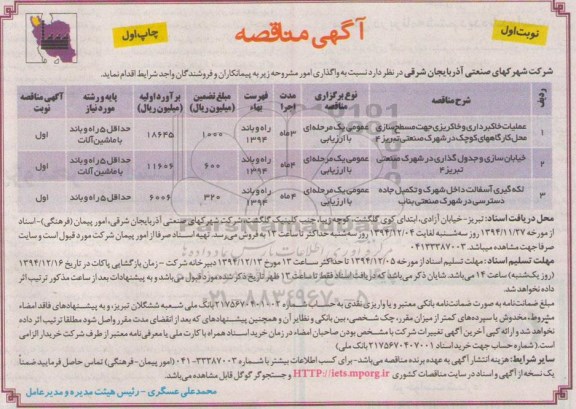 نوبت اول
آگهی مناقصه
چاپ اول
شرکت شهرکهای صنعتی آذربایجان شرقی در نظر دارد نسبت به واگذاری امور مشروحه زیر به پیمانکاران و فروشندگان واجد شرایط اقدام نماید.
ردیف شرح مناقصه نوع برگزاری مناقصه مدت اجرا فهرست بهاء مبلغ تضمین (میلیون ریال) برآورد اولیه (میلیون ریال) پایه و رشته مورد نیاز آگهی مناقصه نوبت
۱ عملیات خاکبرداری و خاکریزی جهت مسطح سازی محل کارگاههای کوچک در شهرک صنعتی تبریز ۴ عمومی یک مرحله‌ای با ارزیابی ۳ ماه راه و باند ۱۳۹۴ ۱۰۰۰ ۱۸۶۴۵ حداقل ۵ راه و باند با ماشین آلات اول
۲ خیابان سازی و جدول گذاری در شهرک صنعتی تبریز ۴ عمومی یک مرحله‌ای با ارزیابی ۴ ماه راه و باند ۱۳۹۴ ۶۰۰ ۱۱۶۰۶ حداقل ۵ راه و باند با ماشین آلات اول
۳ لکه گیری آسفالت داخل شهرک و تکمیل جاده دسترسی در شهرک صنعتی بناب عمومی یک مرحله‌ای با ارزیابی ۴ ماه راه و باند ۱۳۹۴ ۳۲۰ ۶۰۰۶ حداقل ۵ راه و باند اول
محل دریافت اسناد: تبریز - خیابان آزادی، ابتدای کوی گلگشت، کوچه زیبا، جنب کلینیک گلگشت، شرکت شهرکهای صنعتی آذربایجان شرقی، امور پیمان (فرهنگی) - اسناد
از مورخه ۱۳۹۴/۱۱/۲۷ روز سه شنبه لغایت ۱۳۹۴/۱۲/۰۴ روز سه شنبه حداکثر تا ساعت ۱۴ به فروش می‌رسد. تهیه اسناد صرفا از امور پیمان شرکت مورد قبول است و سایت
صرفا جهت مشاهده میباشد. ۰۴۱۳۳۳۸۷۰۰۳
مهلت تسلیم اسناد: مهلت تسلیم اسناد از مورخه ۱۳۹۴/۱۲/۰۵ تا حداکثر ساعت ۱۳ مورخ ۱۳۹۴/۱۲/۱۳ دبیرخانه شرکت - زمان بازگشایی پاکات در تاریخ ۱۳۹۴/۱۲/۱۶
(روز یکشنبه) ساعت ۱۴ می‌باشد. شایان ذکر می‌باشد که دریافت اسناد فقط تا ساعت ۱۳ ظهر تاریخ ذکر شده مورد قبول می‌باشد و به پیشنهادات بعد از ساعت مذکور ترتیب اثر
داده نخواهد شد.
مبلغ ضمانت نامه به صورت ضمانت نامه بانکی معتبر و یا واریز نقدی به حساب شماره ۲۱۷۵۶۷۰۴۰۱۰۰۳ بانک ملی شعبه ششگلان تبریز، و به پیشنهادهای فاقد امضاء
مشروط، مخدوش یا سپرده‌های کمتر از میزان مقرر، چک شخصی، بین بانکی و نظایر آن و همچنین پیشنهادهای که بعد از انقضای مدت مقرر واصل شود مطلقا ترتیب اثر داده
نخواهد شد و ارائه کپی آخرین آگهی تغییرات شرکت با مشخص بودن صاحبان امضاء در زمان خرید اسناد همراه با کارت ملی یا معرفی نامه معتبر از طرف شرکت خریدار الزامی
است (شماره حساب جهت خرید اسناد ۲۱۷۵۶۷۰۴۰۷۰۰۱ بانک ملی)
سایر شرایط: هزینه انتشار آگهی به عهده برنده مناقصه می‌باشد - برای کسب اطلاعات بیشتر با شماره ۳۳۳۸۷۰۰۳-۰۴۱ (امور پیمان - فرهنگی) تماس حاصل فرمایید ضمناً
یک نسخه از آگهی و اسناد در سایت مناقصات کشوری HTTP://iets.mporg.ir و جستجوگر گوگل قابل مشاهده می‌باشد.
محمدعلی عسگری - رئیس هیئت مدیره و مدیرعامل